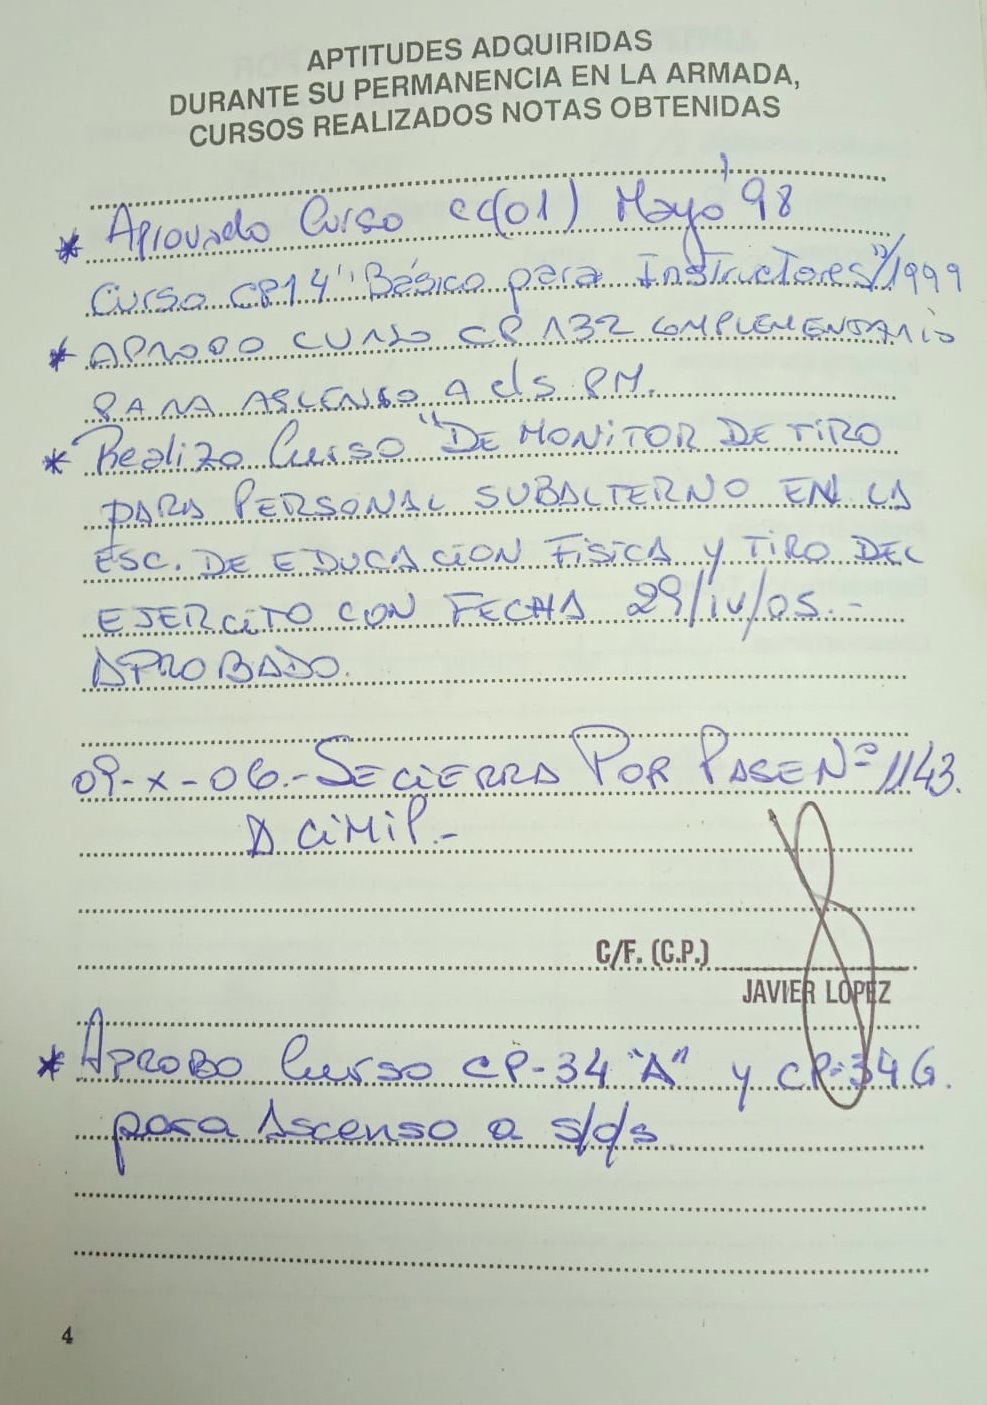 APTITUDES ADQUIRIDAS
DURANTE SU PERMANENCIA EN LA ARMADA,
CURSOS REALIZADOS NOTAS OBTENIDAS
* Aprovado Curso CC(01) Mayo '98
Curso CP14 "Básico para Instructores"/1999
* APROBO CURSO CP 132 COMPLEMENTARIO
PARA ASCENSO A cls PM.
* Realizo Curso "DE MONITOR DE TIRO
PARA PERSONAL SUBALTERNO EN LA
ESC. DE EDUCACION FISICA Y TIRO DEL
EJERCITO CON FECHA 29/IV/05.-
APROBADO.
09-X-06.- SE CIERRA POR PASE Nº 1143.
A CIMIP.-
C/F. (C.P.)
JAVIER LOPEZ
* APROBO Curso CP-34 "A" y CP-34G.
para Ascenso a s/o/s
4